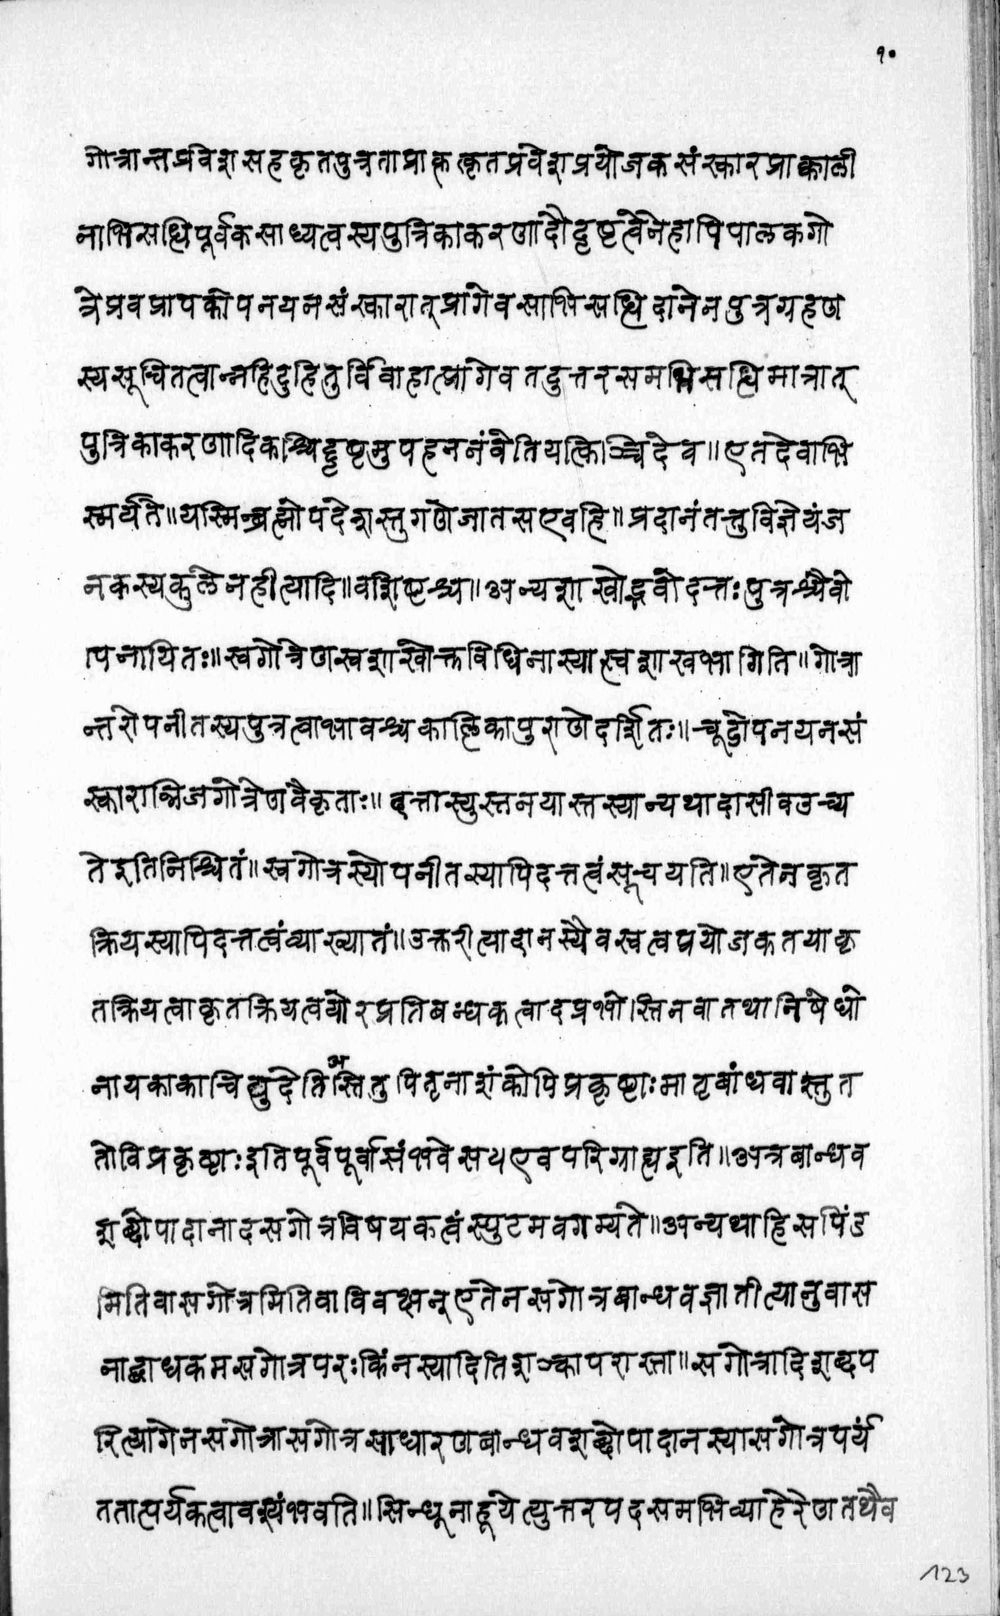 १०
गोत्रान्तप्रवेशसहकृतपुत्रताप्राक्तत्कृतप्रवेशप्रयोजकसंस्कारप्राक्काली
नाभिसन्धिपूर्वकसाध्यत्वस्यपुत्रिकाकरणादौदृष्टत्वेनेहापिपालकगो
त्रेप्रवप्रापकोपनयनसंस्कारात्प्रागेवसाभिसन्धिदानेनपुत्रग्रहण
स्यसूचितत्वान्नहिदुहितुर्विवाहात्प्रागेवतदुत्तरसमभिसन्धिमात्रात्
पुत्रिकाकरणादिकश्चिद्दृष्टमुपहननंवेतियत्किञ्चिदेव॥एतदेवाभि
स्मर्यते॥यस्मिन्ब्रह्मोपदेशस्तुगणेजातसएवहि॥प्रदानंतत्तुविज्ञेयंज
नकस्यकुलेनहीत्यादि॥वशिष्टश्च॥अन्यशाखोद्भवोदत्तःपुत्रश्चैवो
पनायितः॥स्वगोत्रेणस्वशाखोक्तविधिनास्यात्स्वशाखभागिति॥गोत्रा
न्तरोपनीतस्यपुत्रत्वाभावश्चकालिकापुराणेदर्शितः॥चूडोपनयनसं
स्कारान्निजगोत्रेणवैकृताः॥दत्तास्युस्तनयास्तस्यान्यथादासीवउच्य
तेइतिनिश्चितं॥स्वगोत्रस्योपनीतस्यापिदत्तत्वंसूचयति॥एतेनकृत
क्रियस्यापिदत्तत्वंव्याख्यातं॥उक्तरीत्यादानस्यैवस्वत्वप्रयोजकतयाकृ
तक्रियत्वाकृतक्रियत्वयोरप्रतिबन्धकत्वादप्रभोस्तिनवातथानिषेधो
नायकाकाचिद्युदेतिअस्तितुपितृनाशंकोपिप्रकृष्टाःमातृबांधवास्तुत
तोविप्रकृष्टाःइतिपूर्वपूर्वासंभवेसयएवपरिग्राह्यइति॥अत्रबान्धव
शब्दोपादानादसगोत्रविषयकत्वंस्फुटमवगम्यते॥अन्यथाहिसपिंड
मितिवासगोत्रमितिवाविवक्षन्एतेनसगोत्रबान्धवज्ञातीत्यानुवास
नाद्बाधकमसगोत्रपरःकिंनस्यादितिशङ्कापरास्ता॥सगोत्रादिशब्दप
रित्यागेनसगोत्रासगोत्रसाधारणबान्धवशब्दोपादानस्यासगोत्रपर्य
ततात्पर्यकत्वावश्यंभवति॥सिन्धूनाहूयेत्युत्तरपदसमभिव्याहेरेणतथैव
123